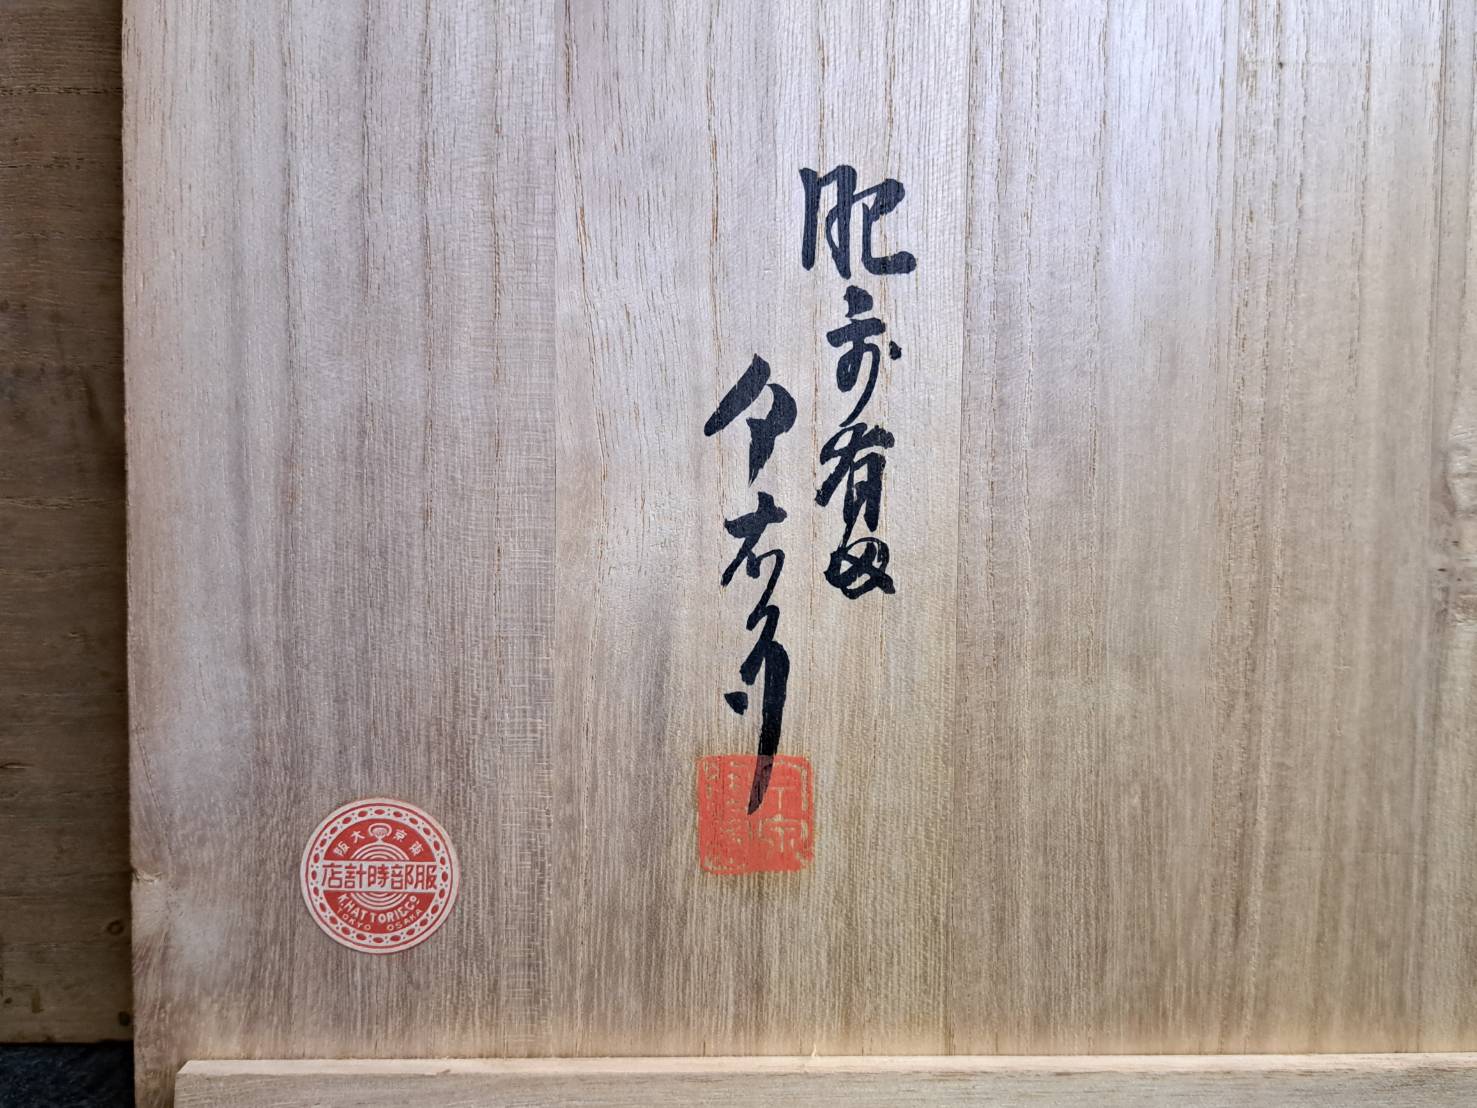 肥前有田
今右衛門
東京大阪
服部時計店
K.HATTORI&Co.
TOKYO OSAKA